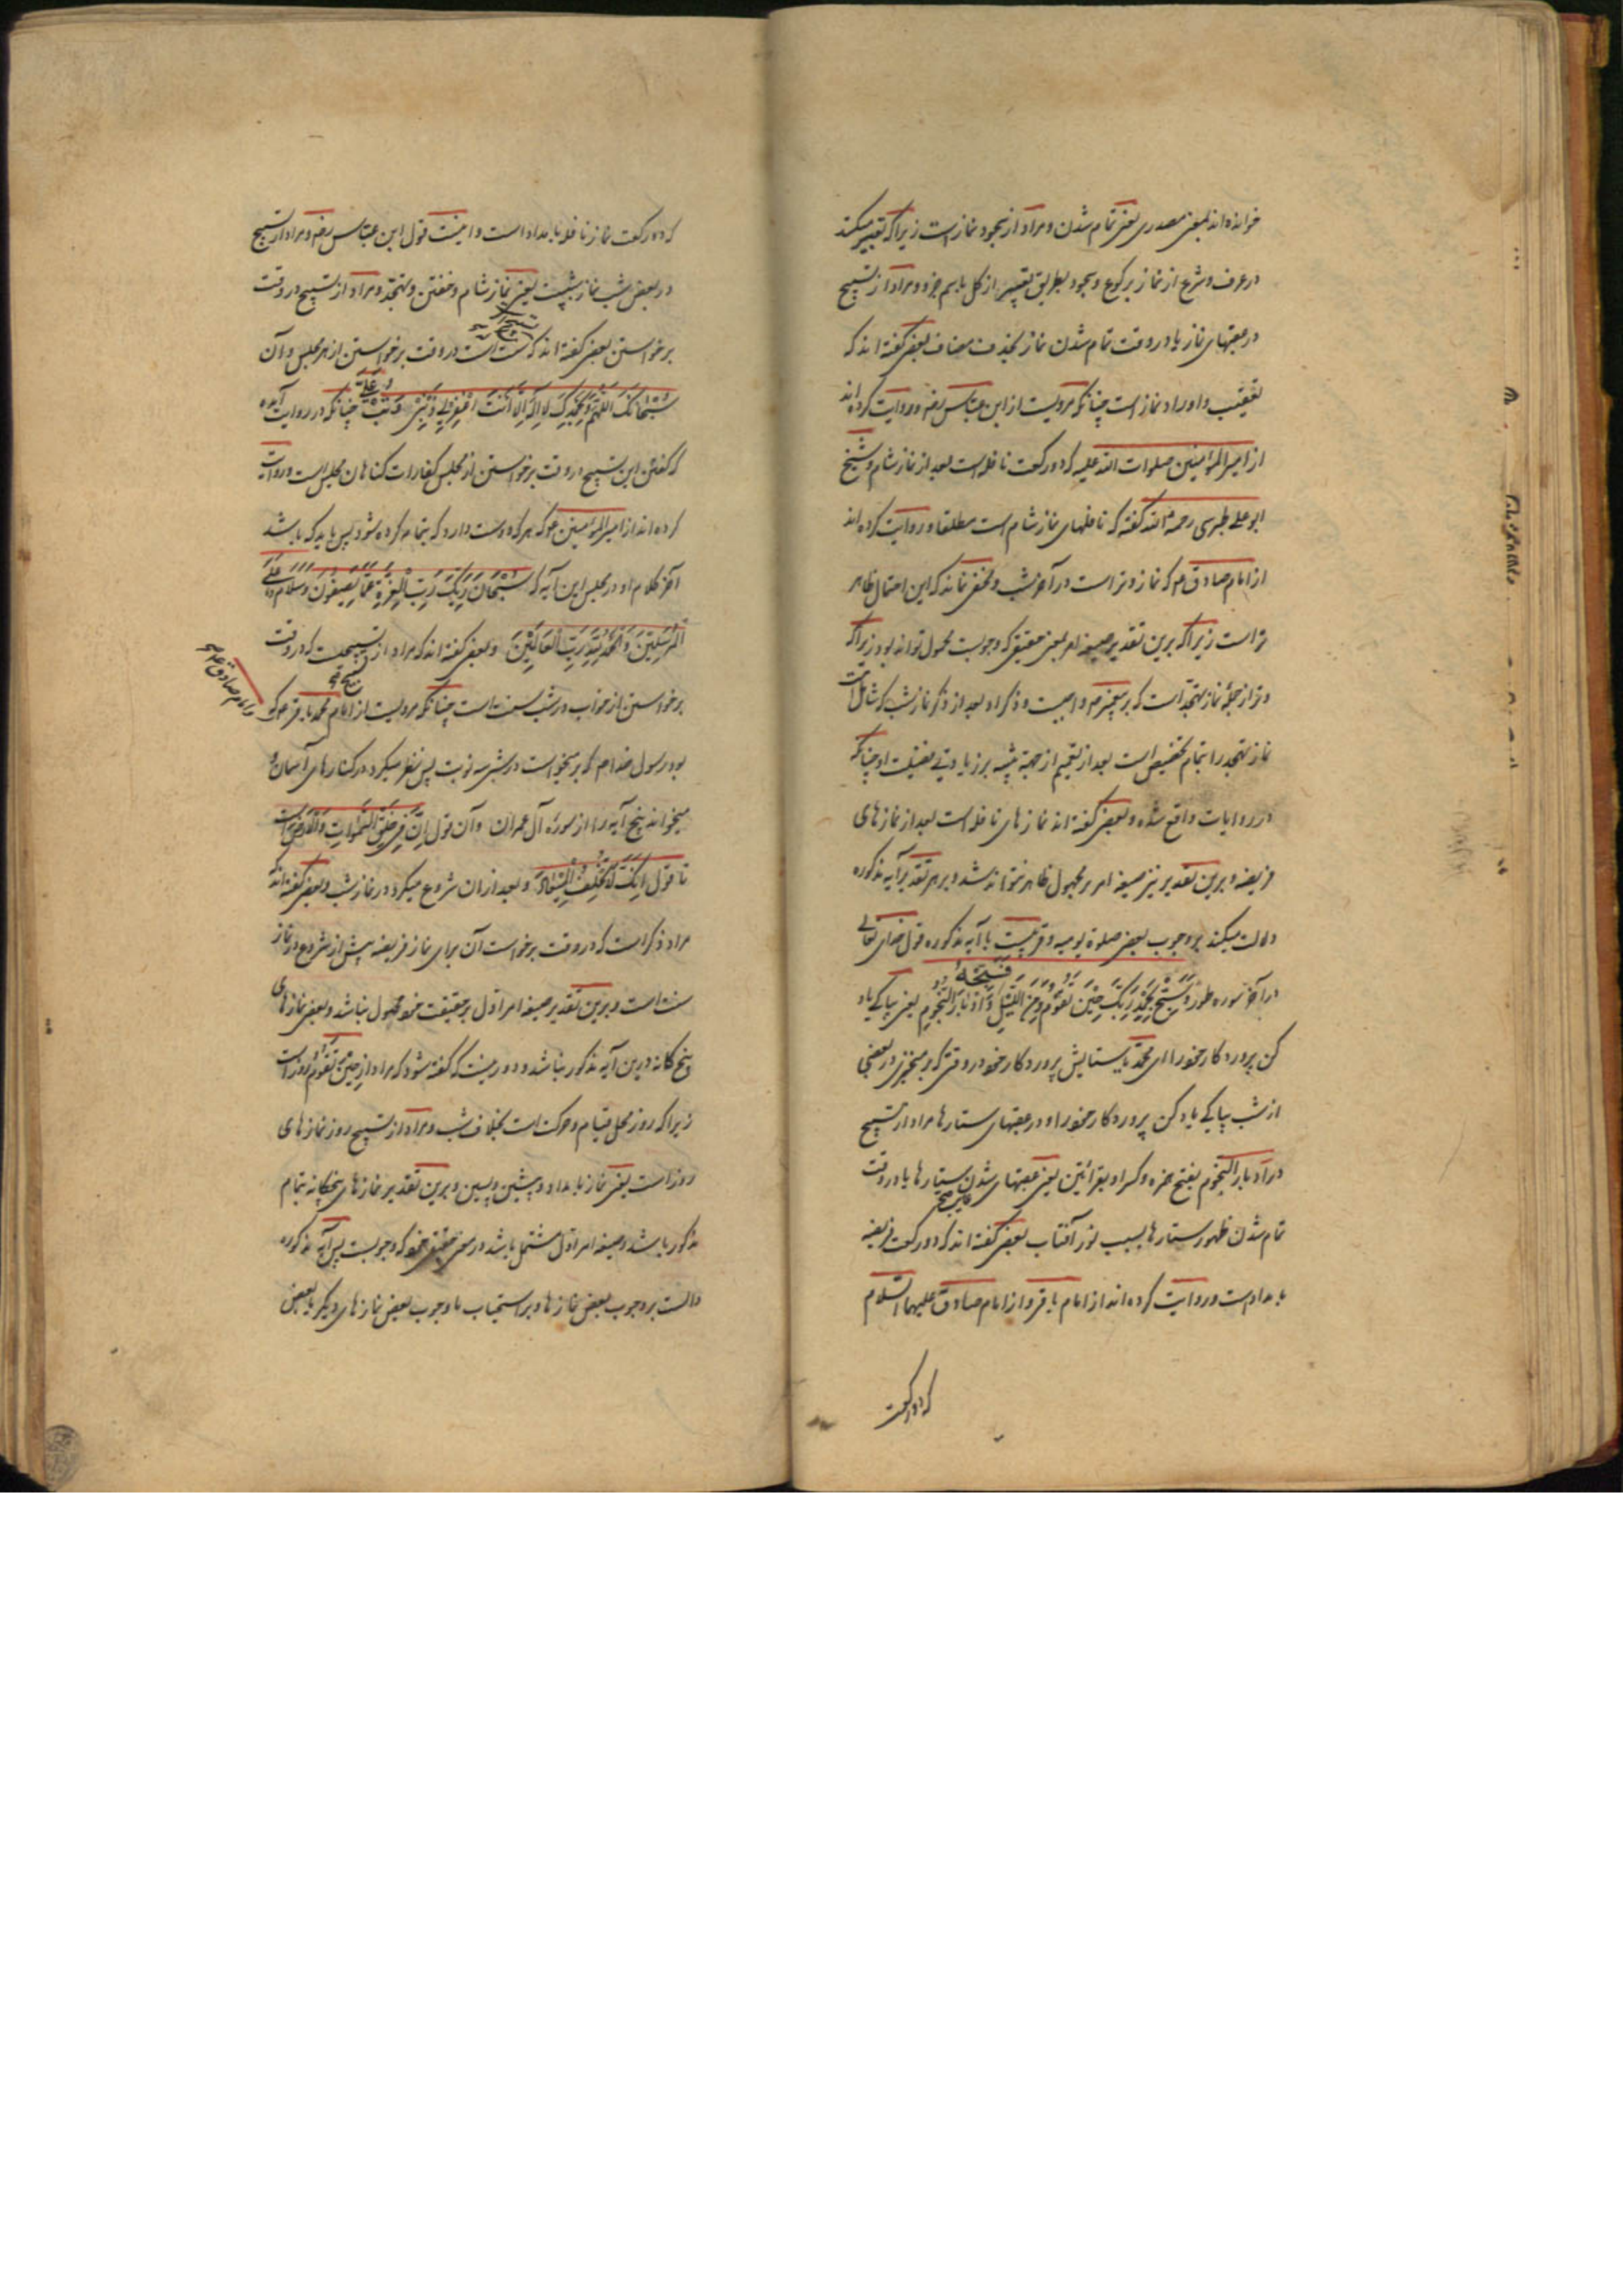 خوانده‌اند بمعنی مصدری یعنی تمام شدن و مراد از سجود نمازست زیراکه تعبیر میکنند
در عرف و شرع از نماز برکوع و سجود بطریق تعبیر از کل باسم جزو و مراد از تسبیح
در عقبهای نماز یا در وقت تمام شدن نماز بحذف مضاف بعضی گفته‌اند که
تعقیب و اوراد نماز است چنانکه مرویست از ابن عباس رضه و روایت کرده‌اند
از امیرالمؤمنین صلوات الله علیه که دو رکعت نافله است بعد از نماز شام و شیخ
ابو علی طبرسی رحمه الله گفته که نافلهای نماز شام است مطلقا و روایت کرده‌اند
از امام صادق عم که نماز وتر است در آخر شب و مخفی نماند که این احتمال ظاهر
تر است زیراکه برین تقدیر صیغه امر بمعنی حقیقی که وجوبست محمول تواند بود زیراکه
وتر از جملهٔ نماز تهجد است که بر پیغمبر صم واجبست و ذکر او بعد از ذکر نماز شب که شاملست
نماز تهجد را بتمام تخصیص است بعد از تعمیم از جهة تنبیه بر زیادتی فضیلت او چنانکه
در روایات واقع شده و بعضی گفته‌اند نمازهای نافله است بعد از نمازهای
فریضه و برین تقدیر نیز صیغه امر بر مجهول ظاهر نتواند شد و بر هر تقدیر آیه مذکوره
دلالت میکند بر وجوب بعضی صلوة یومیه و قریبست با آیه مذکوره قول خدای تعالی
در آخر سوره طور وَسَبِّحْ بِحَمْدِ رَبِّكَ حِينَ تَقُومُ وَمِنَ اللَّيْلِ فَسَبِّحْهُ وَإِدْبَارَ النُّجُومِ یعنی بپاکی یاد
کن پروردکار خود را ای محمد با ستایش پروردکار خود در وقتی که بر میخیزی و در بعضی
از شب بپاکی یاد کن پروردکار خود را و در عقبهای ستارها مراد از تسبیح
در ادبار النجوم بفتح همزه و کسر او بقرائتین یعنی عقبهای شدن ستارها یا در وقت
تمام شدن ظهور ستارها بسبب نور آفتاب بعضی گفته‌اند که دو رکعت فریضه
بامدادست و روایت کرده‌اند از امام باقر و از امام صادق علیهما السلام
که دو رکعت
که دو رکعت نماز نافله بامداد است و اینست قول ابن عباس رضه و مراد از تسبیح
در بعض شب نماز شبست یعنی نماز شام و خفتن و تهجد و مراد از تسبیح در وقت
برخواستن بعضی گفته‌اند که سنت است در وقت برخواستن از هر مجلس و آن
سُبْحَانَكَ اللَّهُمَّ وَبِحَمْدِكَ لَا إِلَهَ إِلَّا أَنْتَ اغْفِرْ لِي وَتُبْ عَلَيَّ چنانکه در روایت آمده
که گفتن این تسبیح در وقت برخواستن از مجلس کفارات کناهان مجلس است و روایت
کرده‌اند از امیرالمؤمنین عم که هر که دوست دارد که پیمانه کرده شود پس باید که باشد
آخر کلام او در مجلس این آیه که سُبْحَانَ رَبِّكَ رَبِّ الْعِزَّةِ عَمَّا يَصِفُونَ وَسَلَامٌ عَلَى
الْمُرْسَلِينَ وَالْحَمْدُ لِلَّهِ رَبِّ الْعَالَمِينَ و بعضی گفته‌اند که مراد از تسبیحیست که در وقت
برخواستن از خواب در شب سنت است چنانکه مرویست از امام محمد باقر عم که
و امام صادق علیهم
بود رسول خدا صم که بر میخواست در شب سه نوبت پس نظر میکرد در کنارهای آسمان و
میخواند پنج آیه را از سورهٔ آل عمران و آن قول إِنَّ فِي خَلْقِ السَّمَوَاتِ وَالْأَرْضِ است
تا قول إِنَّكَ لَا تُخْلِفُ الْمِيعَادَ و بعد از ان شروع میکرد در نماز شب و بعضی گفته‌اند که
مراد ذکر است که در وقت برخواستن آن برای نماز فریضه پیش از شروع در نماز
سنت است و برین تقدیر صیغه امر اول بر حقیقت خود محمول نباشد و بعضی نمازهای
پنج کانه درین آیه مذکور نباشد و دور نیست که گفته شود که مراد از حِينَ تَقُومُ روز است
زیراکه روز محل قیام و حرکت است بخلاف شب و مراد از تسبیح روز نمازهای
روز است یعنی نماز بامداد و پیشین و پسین و برین تقدیر نمازهای پنجکانه بتمام
مذکور باشد و صیغه امر اول مشتمل باشد در معنی حقیقی خود که وجوبست پس آیه مذکوره
دالست بر وجوب بعض نمازها و بر استحباب یا وجوب بعض نمازهای دیکر یا بعض